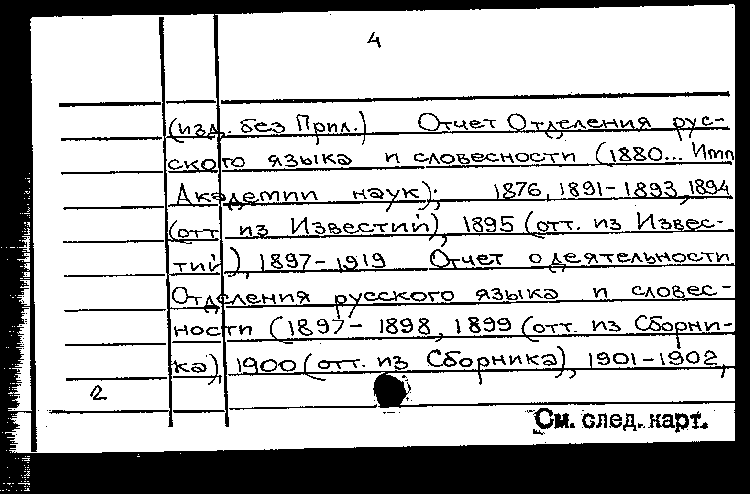 4
(изд. без Прил.) Отчет Отделения рус-
ского языка и словесности (1880... Имп
Академии наук); 1876, 1891-1893, 1894
(отт. из Известий), 1895 (отт. из Извес-
тий), 1897-1919 Отчет о деятельности
Отделения русского языка и словес-
ности (1897-1898, 1899 (отт. из Сборни-
ка), 1900 (отт. из Сборника), 1901-1902,
2
См. след. карт.